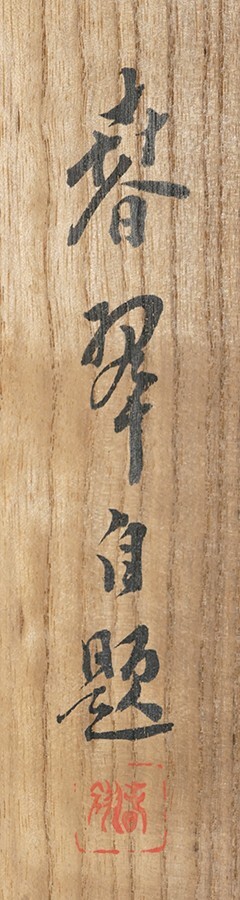 春翠自題